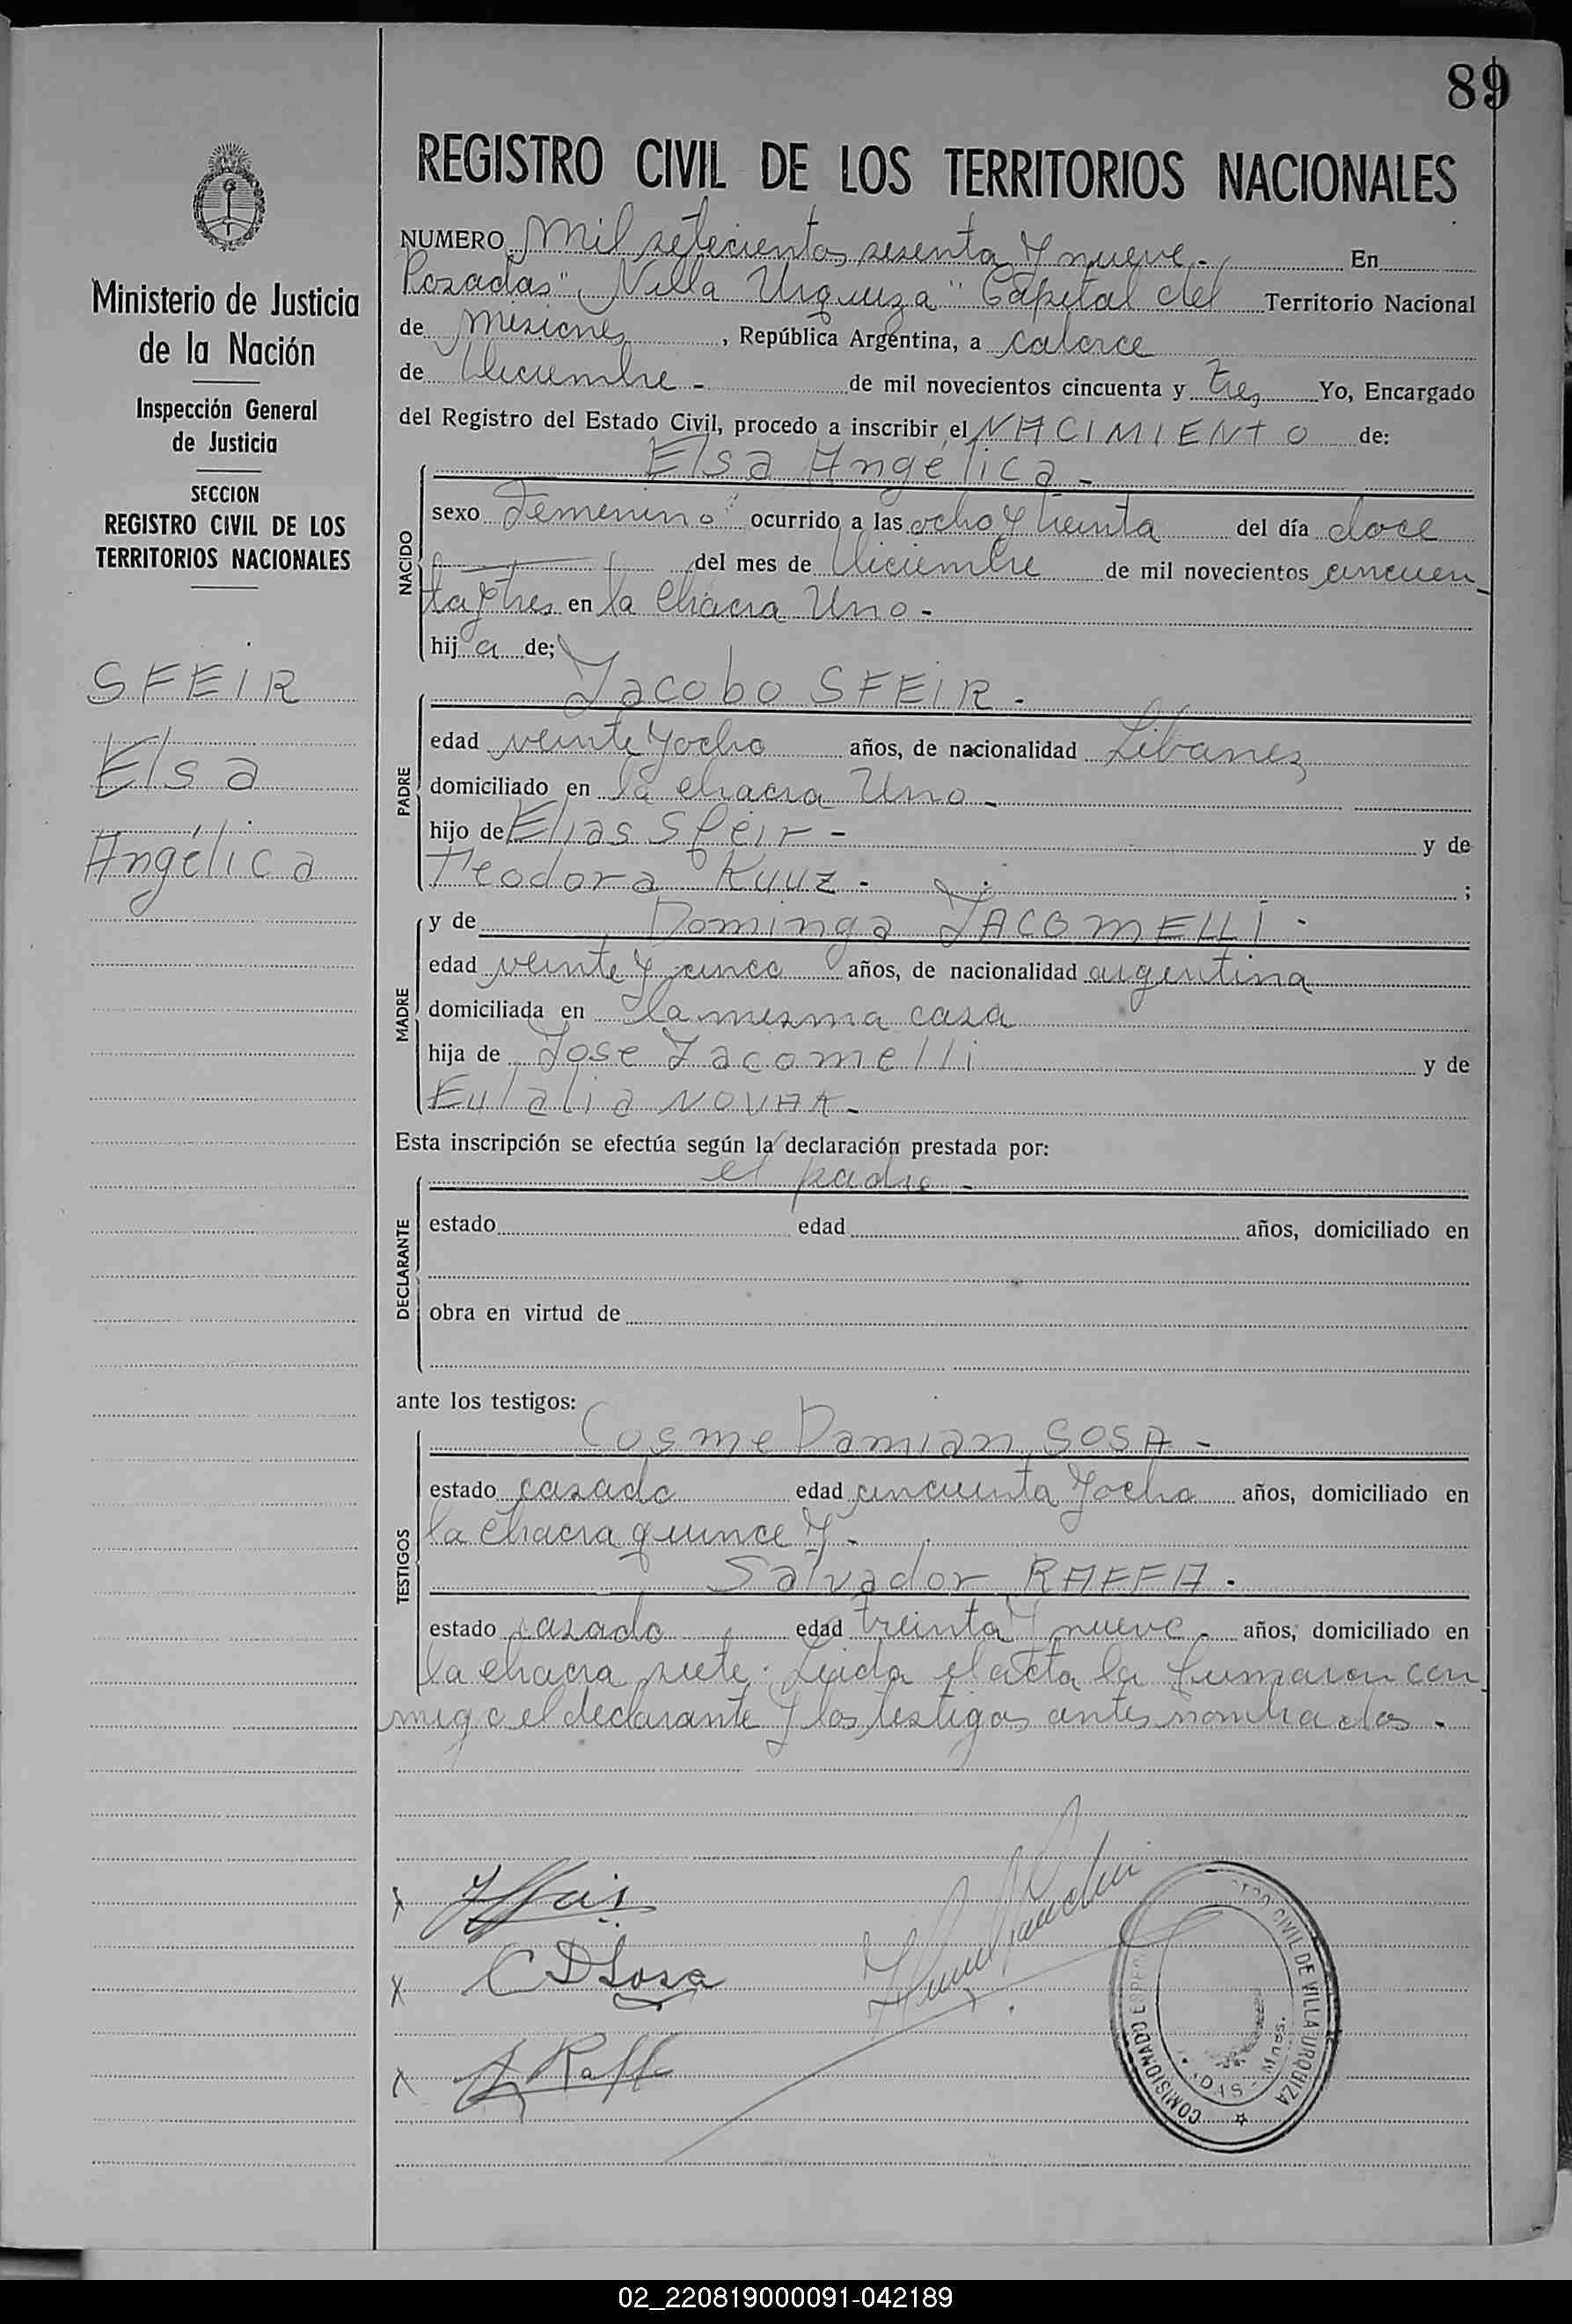 89
REGISTRO CIVIL DE LOS TERRITORIOS NACIONALES
Ministerio de Justicia
de la Nación
Inspección General
de Justicia
SECCION
REGISTRO CIVIL DE LOS
TERRITORIOS NACIONALES
SFEIR
Elsa
Angélica
NUMERO Mil setecientos sesenta y nueve.- En
Posadas "Villa Urquiza" Capital del Territorio Nacional
de Misiones, República Argentina, a catorce
de Diciembre - de mil novecientos cincuenta y tres Yo, Encargado
del Registro del Estado Civil, procedo a inscribir el NACIMIENTO de:
Elsa Angélica -
NACIDO
sexo "Femenino" ocurrido a las ocho y treinta del día doce
del mes de Diciembre de mil novecientos cincuen-
ta y tres en la chacra Uno -
hij a de;
Jacobo SFEIR -
PADRE
edad veinte y ocho años, de nacionalidad Libanes
domiciliado en la chacra Uno -
hijo de Elias Sfeir - y de
Teodora Kuuz - ;
y de Dominga JACOMELLI -
MADRE
edad veinte y cinco años, de nacionalidad argentina
domiciliada en la misma casa
hija de Jose Jacomelli y de
Eulalia NOVAK -
Esta inscripción se efectúa según la declaración prestada por:
el padre -
DECLARANTE
estado edad años, domiciliado en
obra en virtud de
ante los testigos:
Cosme Damian SOSA -
TESTIGOS
estado casado edad cincuenta y ocho años, domiciliado en
la chacra quince y -
Salvador RAFFA -
estado casado edad treinta y nueve - años, domiciliado en
la chacra siete. Leida el acta la firmaron con-
migo el declarante y los testigos antes nombrados -
x
x C D Sosa
x Raffa
REGISTRO CIVIL DE VILLA URQUIZA
COMISIONADO
DAS - Mnes.
02_220819000091-042189